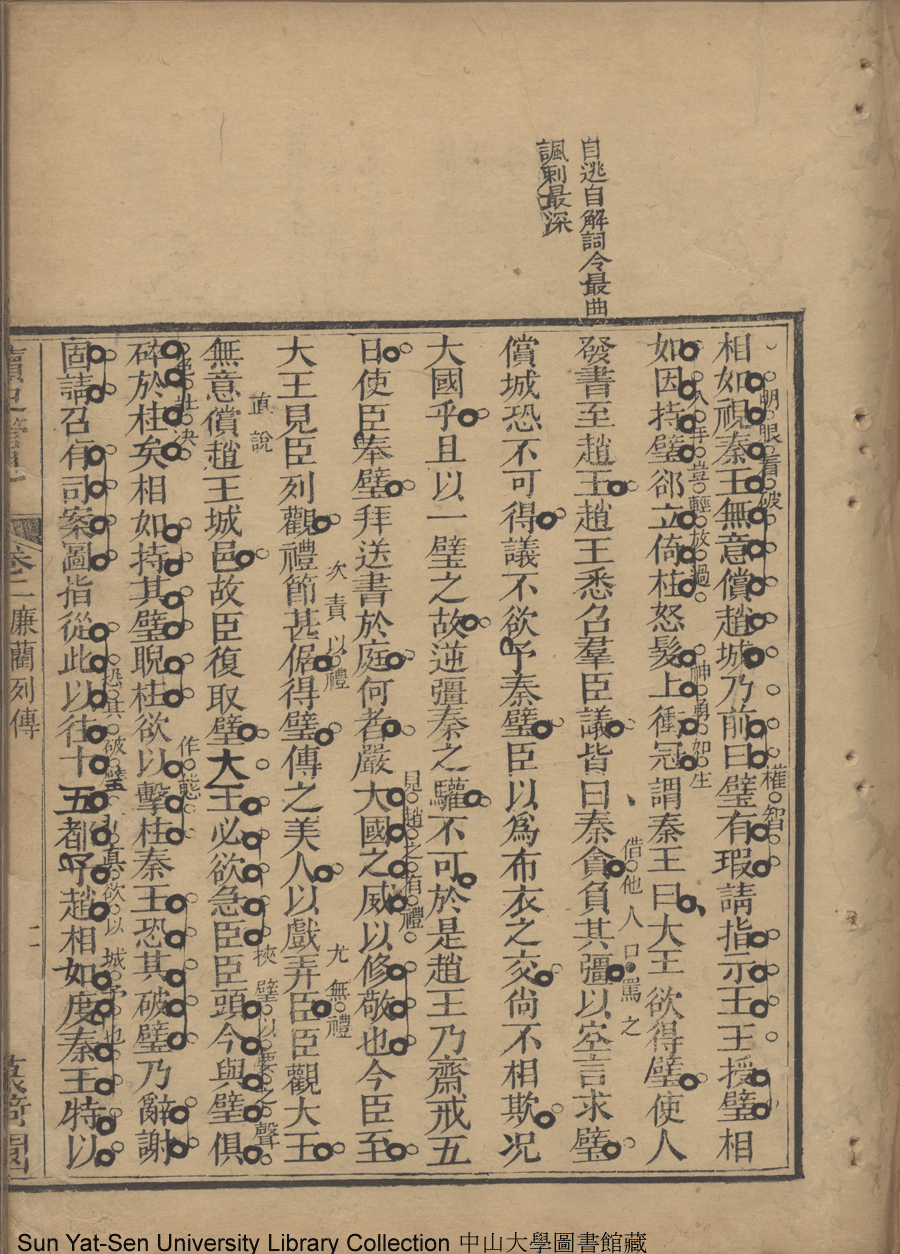 自逃自解詞令最曲
諷刺最深
相如視秦王無意償趙城乃前曰璧有瑕請指示王王授璧相
明眼看破
權智
如因持璧郤立倚柱怒髮上衝冠謂秦王曰大王欲得璧使人
入手豈輕放過
神勇如生
發書至趙王趙王悉召羣臣議皆曰秦貪負其彊以空言求璧
借他人口罵之
償城恐不可得議不欲予秦璧臣以爲布衣之交尙不相欺况
大國乎且以一璧之故逆彊秦之驩不可於是趙王乃齋戒五
日使臣奉璧拜送書於庭何者嚴大國之威以修敬也今臣至
見趙之有禮
大王見臣列觀禮節甚倨得璧傳之美人以戲弄臣臣觀大王
次責以禮
尤無禮
無意償趙王城邑故臣復取璧大王必欲急臣臣頭今與璧俱
直說
挾璧以要之聲
碎於柱矣相如持其璧睨柱欲以擊柱秦王恐其破璧乃辭謝
作態
固請召有司案圖指從此以往十五都予趙相如度秦王特以
恐其破璧
真欲以城予也
讀史
卷二廉藺列傳
二